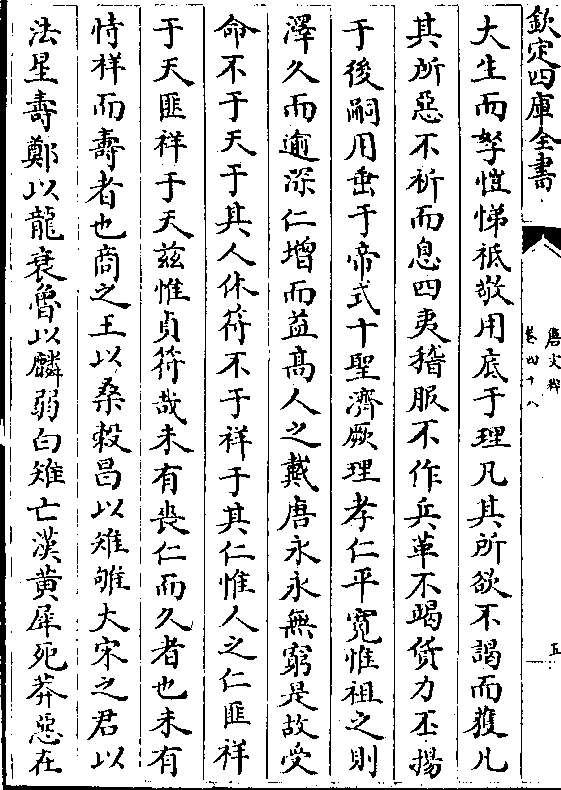 欽定四庫全書
唐文粹
卷四十八
五
大生而孥愷悌祇敬用底于理凡其所欲不謁而獲凡
其所惡不祈而息四夷稽服不作兵革不竭貨力丕揚
于後嗣用垂于帝式十聖濟厥理孝仁平寛惟祖之則
澤久而逾深仁增而益高人之戴唐永永無窮是故受
命不于天于其人休符不于祥于其仁惟人之仁匪祥
于天匪祥于天兹惟貞符哉未有喪仁而久者也未有
恃祥而壽者也商之王以桑榖昌以雉雊大宋之君以
法星壽鄭以龍衰魯以麟弱白雉亡漢黄犀死莽惡在